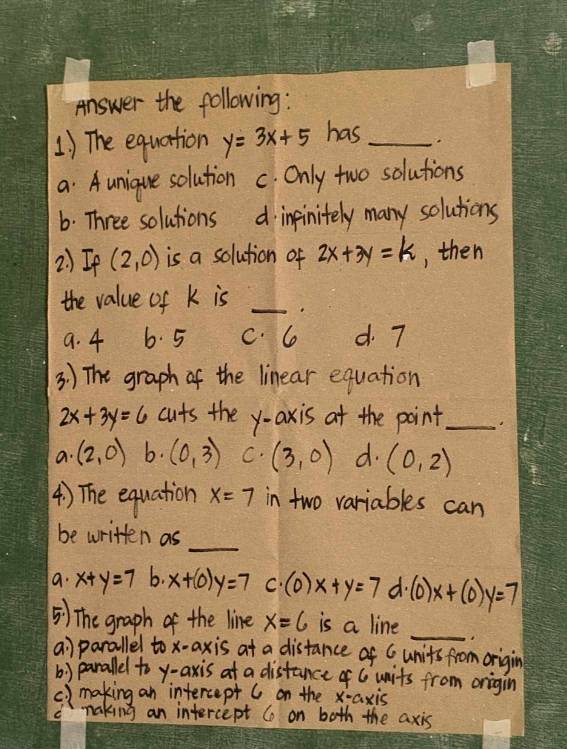 Answer the following:
1.) The equation y = 3x + 5 has ____.
a. A unique solution c. Only two solutions
b. Three solutions d. infinitely many solutions
2.) If (2,0) is a solution of 2x + 3y = k, then
the value of k is ___.
a. 4 b. 5 c. 6 d. 7
3.) The graph of the linear equation
2x + 3y = 6 cuts the y-axis at the point ____.
a. (2,0) b. (0,3) c. (3,0) d. (0,2)
4.) The equation x = 7 in two variables can
be written as ____
a. x+y=7 b. x+(0)y=7 c. (0)x+y=7 d. (0)x+(0)y=7
5.) The graph of the line x=6 is a line ____.
a.) parallel to x-axis at a distance of 6 units from origin
b.) parallel to y-axis at a distance of 6 units from origin
c.) making an intercept 6 on the x-axis
d.) making an intercept 6 on both the axis